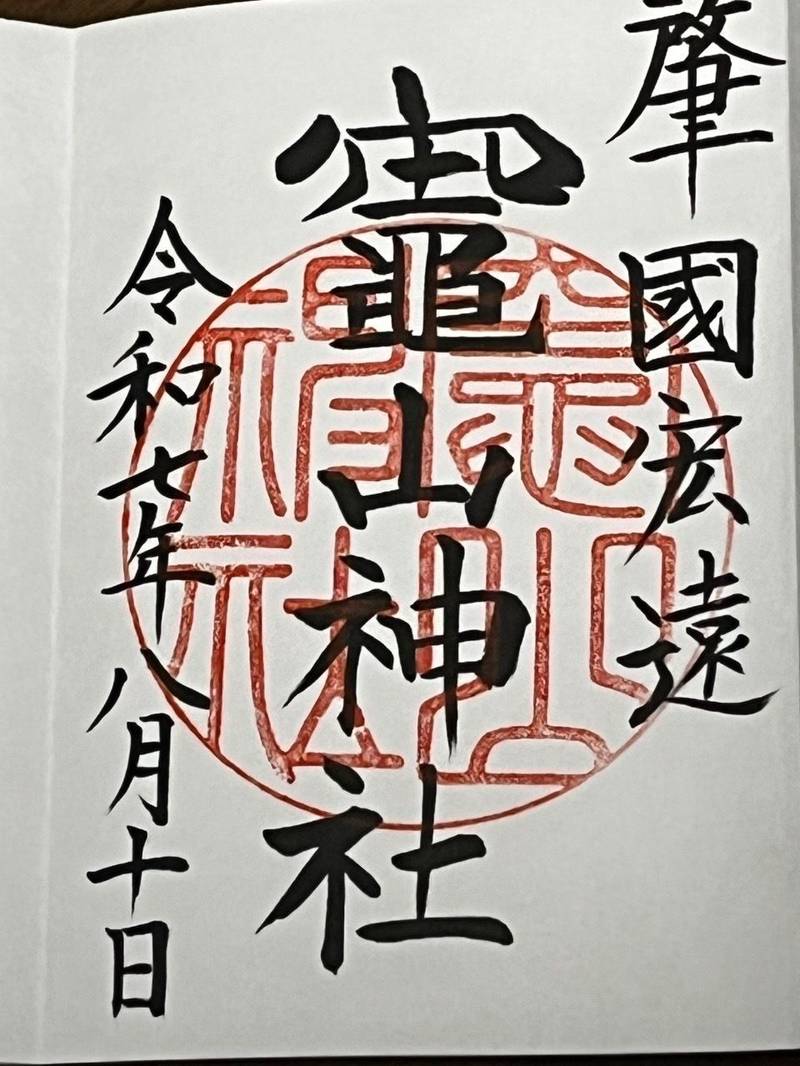 肇國宏遠
竈山神社
令和七年八月十日
竈山神社